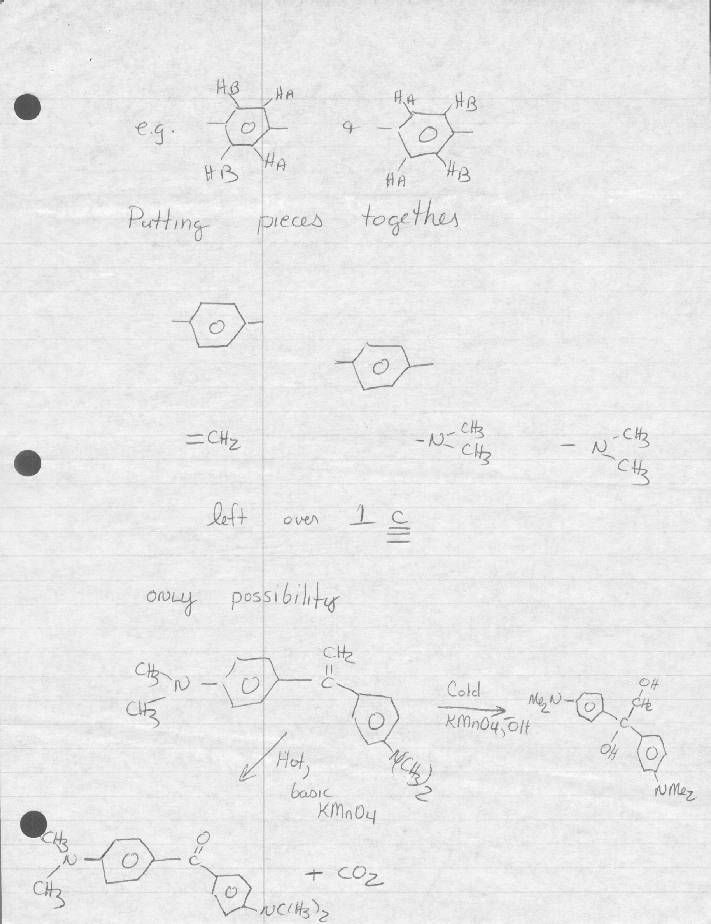 HB HA HA HB
e.g. &
HB HA HA HB
Putting pieces together
=CH2 -N CH3 CH3 - N CH3 CH3
left over 1 C
only possibility
CH3 CH3 N CH2 C N(CH3)2
Cold
KMnO4, -OH
Me2N OH CH2 C OH NMe2
Hot,
basic
KMnO4
CH3 N CH3 O C N(CH3)2 + CO2